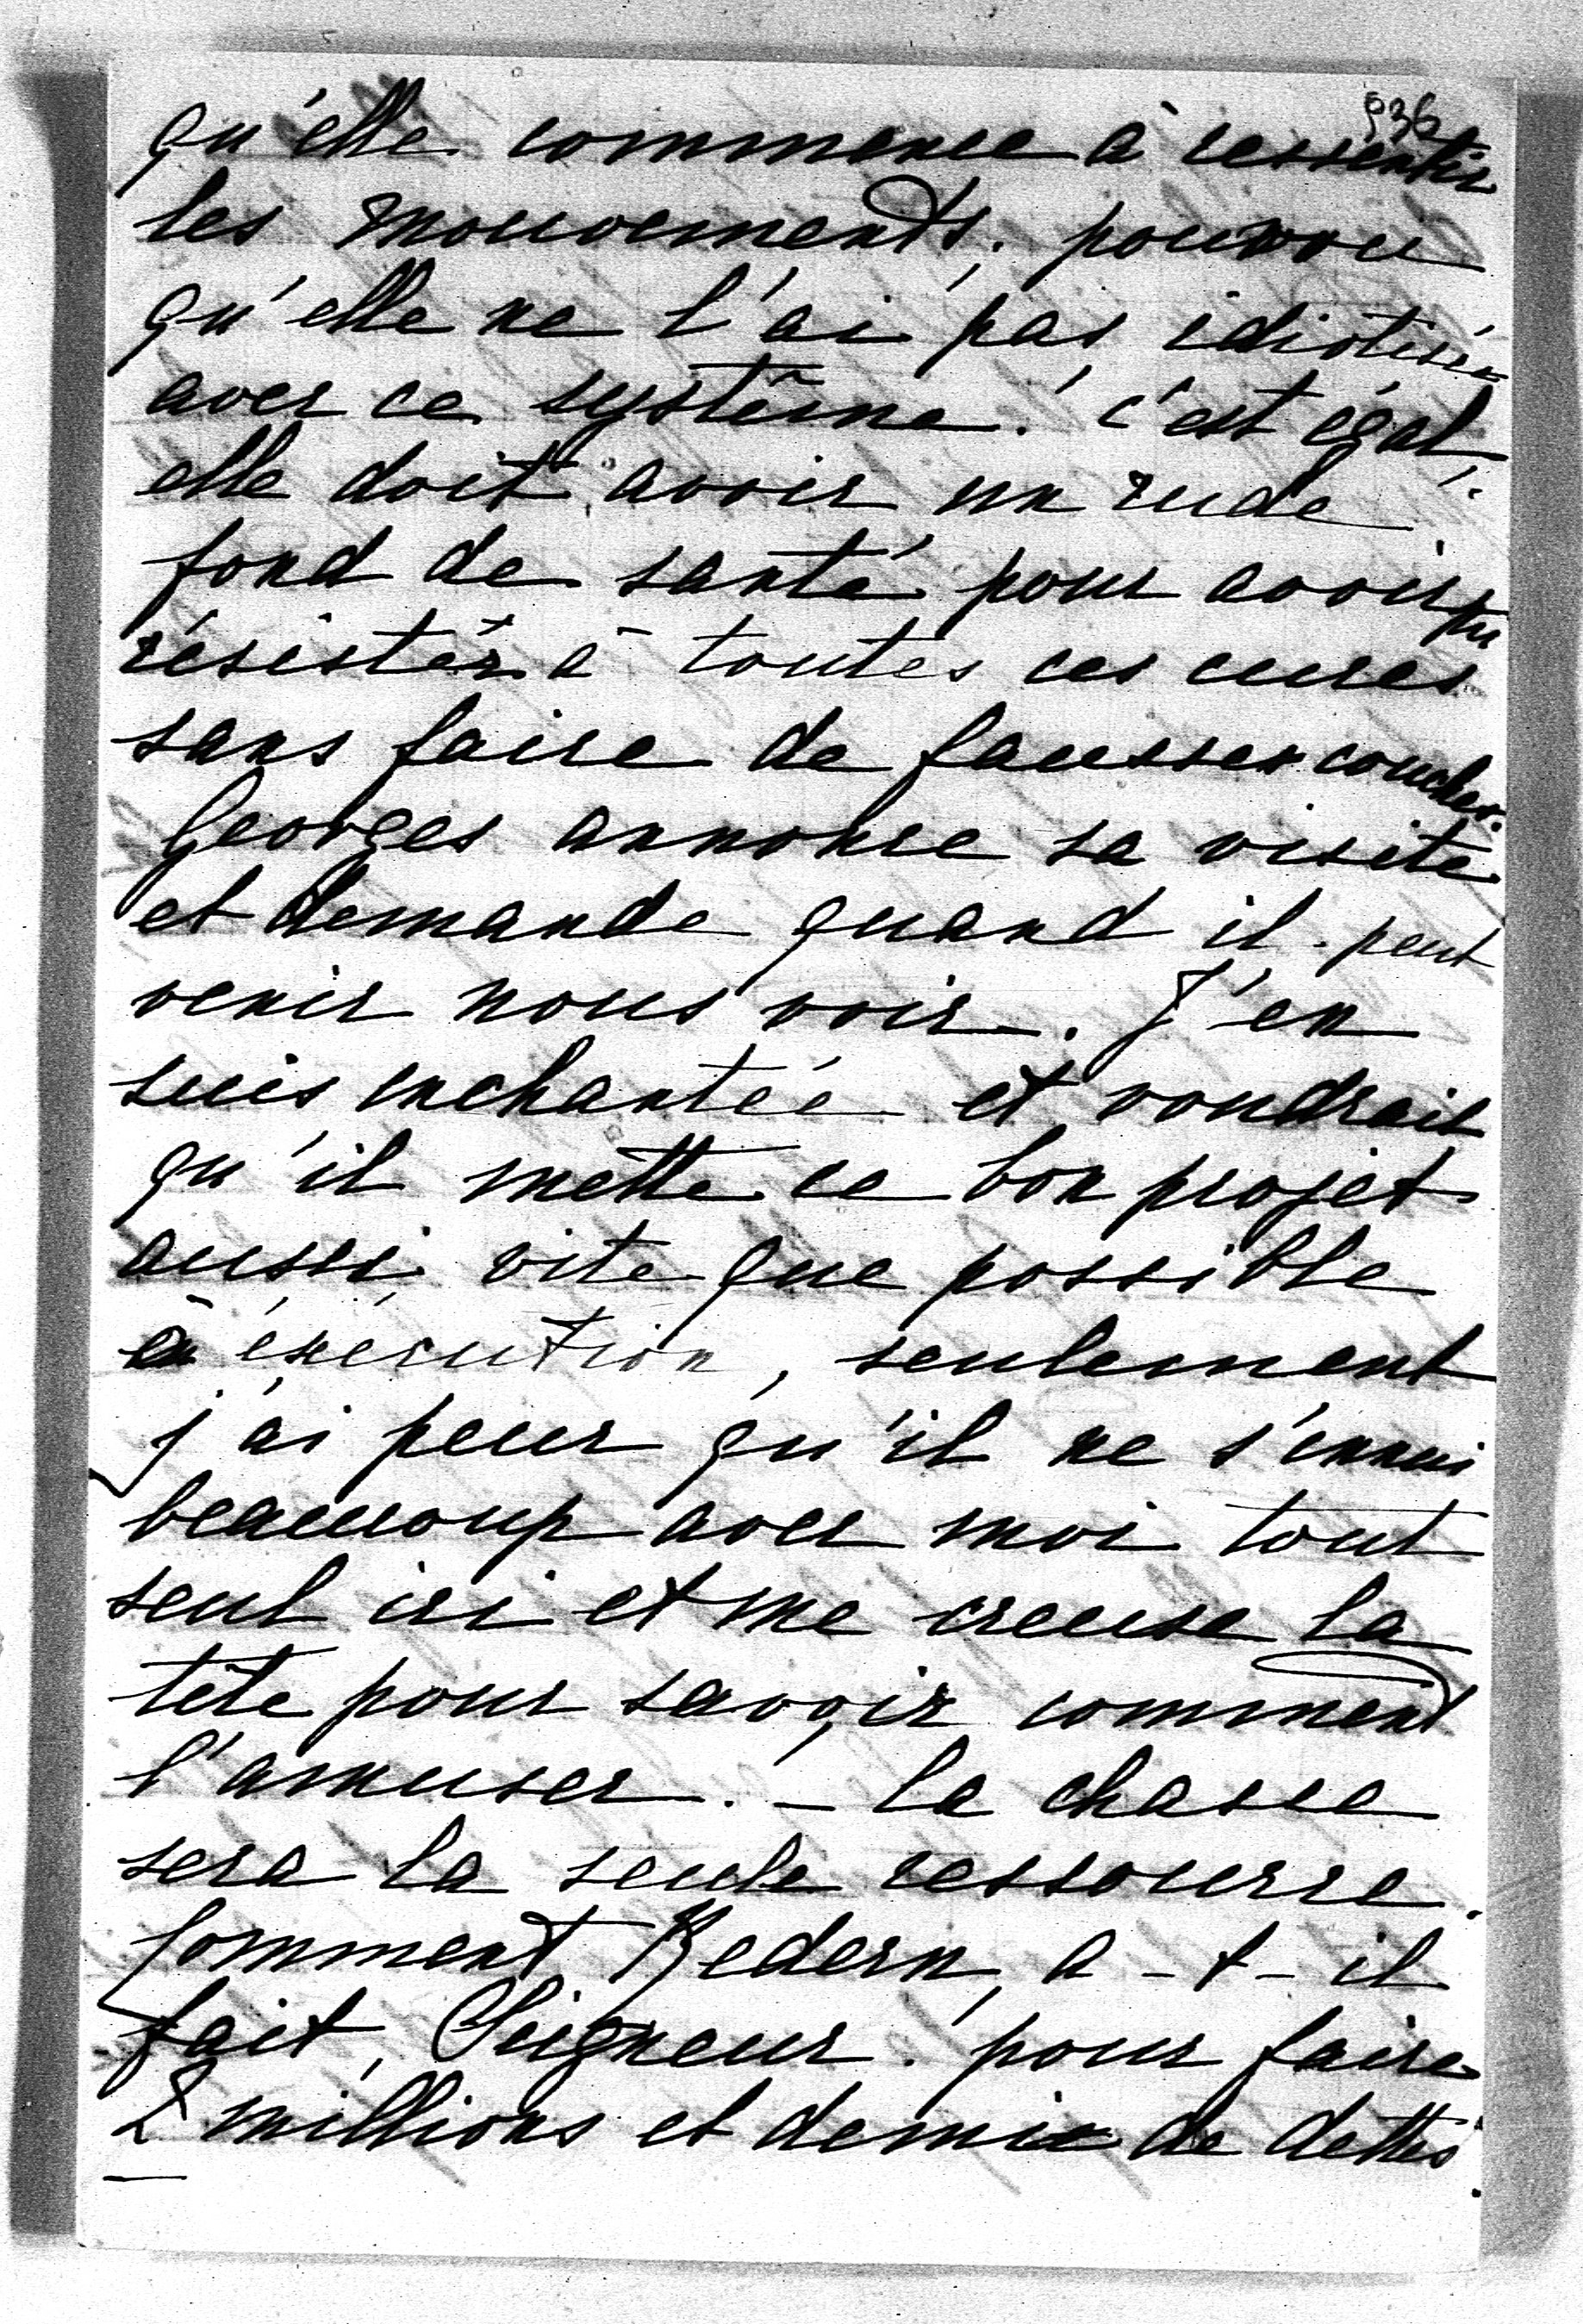 936
qu'elle commence à ressentir
les mouvements; pourvu
qu'elle ne l'ai pas idiotisée
avec ce système! c'est égal,
elle doit avoir un rude
fond de santé pour avoir pu
résister à toutes ces cures
sans faire de fausses couches.
Georges annonce sa visite
et demande quand il peut
venir nous voir. J'en
suis enchantée et voudrait
qu'il mette ce bon projet
aussi vite que possible
à éxécution, seulement
j'ai peur qu'il ne s'ennui
beaucoup avec moi tout
seul ici et me creuse la
tête pour savoir comment
l'amuser. – La chasse
sera la seule ressource.
Comment Redern, a-t-il
fait, Seigneur! pour faire
2 millions et demie de dettes